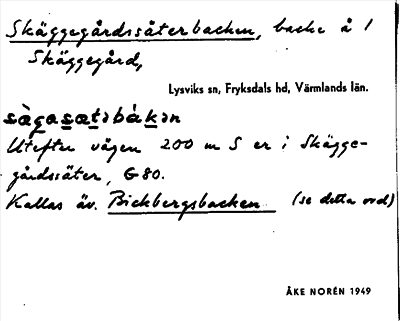 Skäggegårdssäterbacken, backe å 1
Skäggegård,
Lysviks sn, Fryksdals hd, Värmlands län.
Utefter vägen 200 m S er i Skägge-
gårdssäter, G80.
Kallas äv. Bickbergsbacken (se detta ord)
ÅKE NORÉN 1949